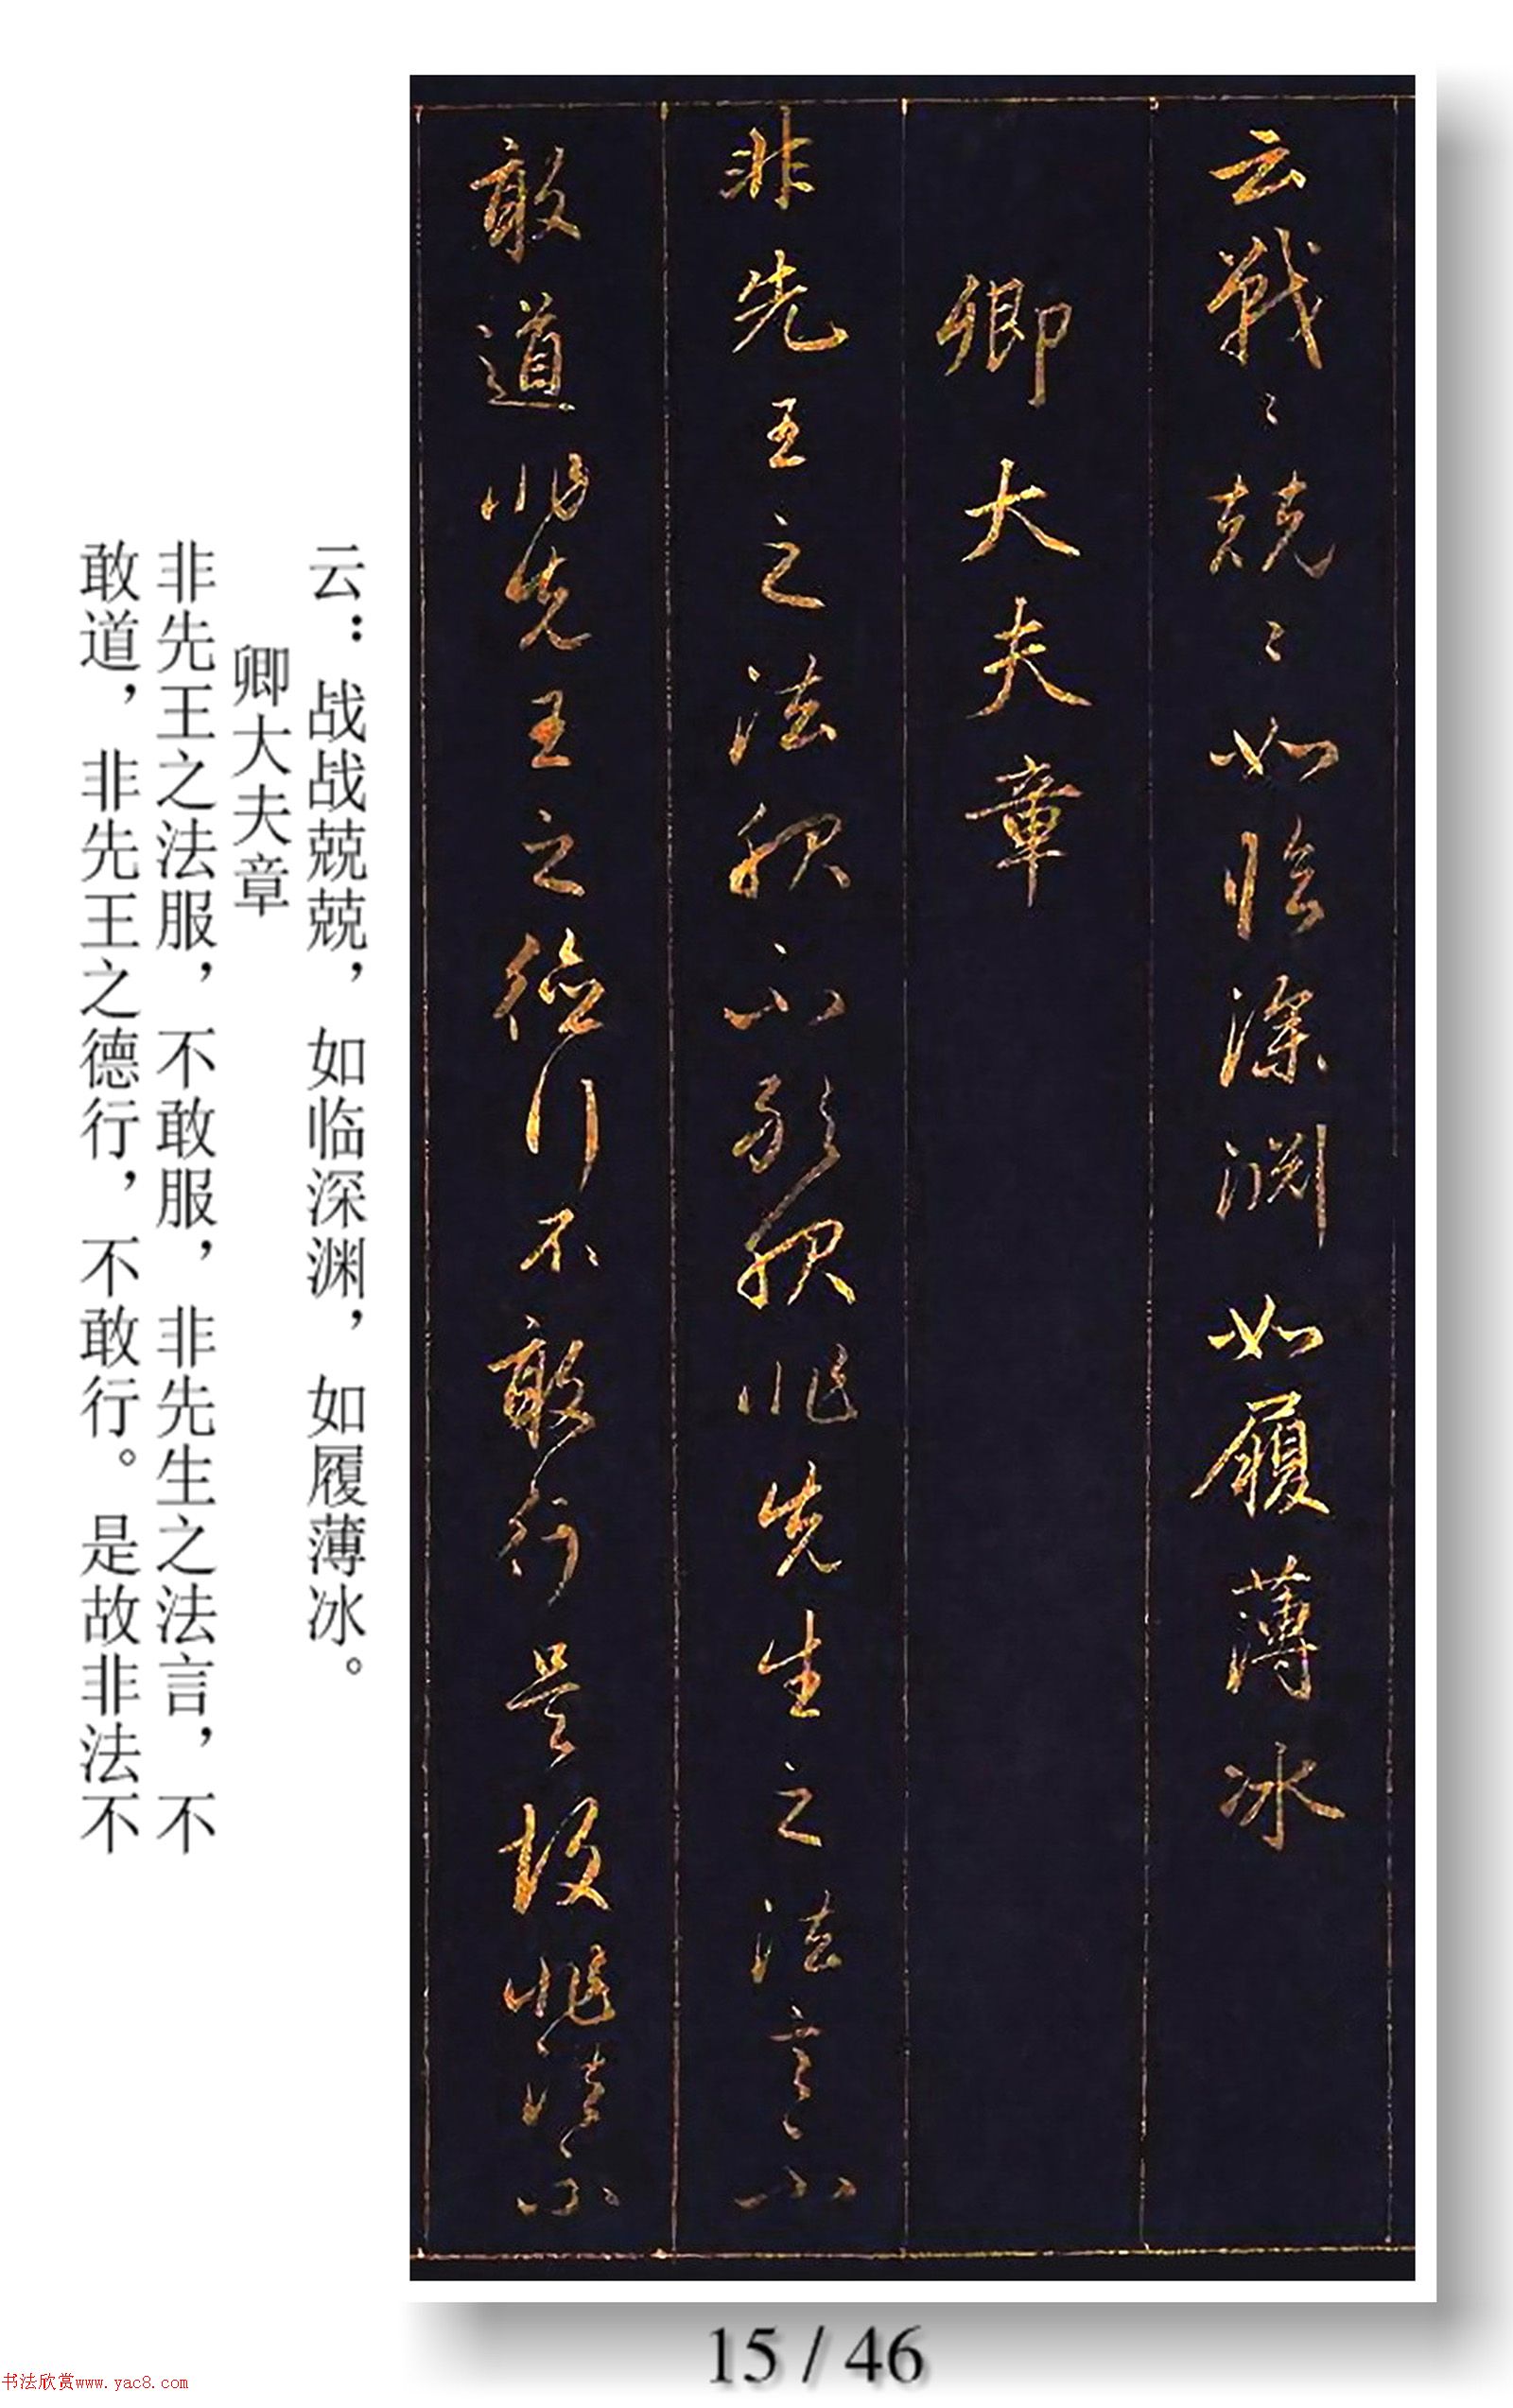 云戰〻兢〻如臨深淵如履薄冰
卿大夫章
非先王之法服不敢服非先生之法言不
敢道非先王之德行不敢行是故非法不
云：战战兢兢，如临深渊，如履薄冰。
卿大夫章
非先王之法服，不敢服，非先生之法言，不
敢道，非先王之德行，不敢行。是故非法不
15 / 46
书法欣赏www.yac8.com